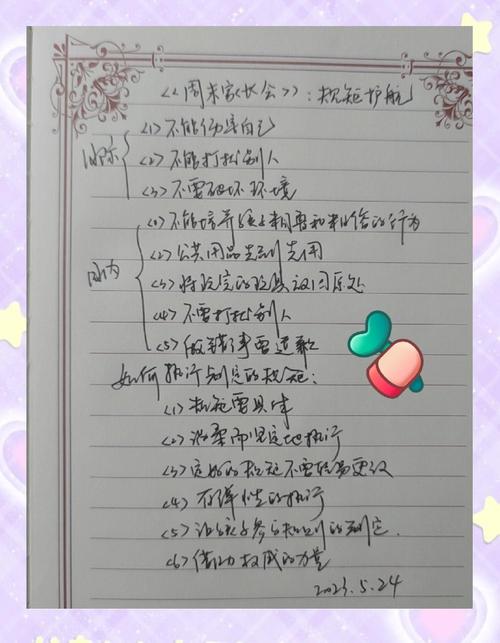 《周末家长会》：规矩护航
国际
<1>不能伤害自己
<2>不能打扰别人
<3>不要破坏环境
国内
<1>不能培养孩子粗鲁和粗俗的行为
<2>公共用品先到先用
<3>将收完的玩具放回原处
<4>不要打扰别人
<5>做错事要道歉
如何执行制定的规矩：
<1>规矩要具体
<2>温柔而坚定地执行
<3>定好的规矩不要轻易更改
<4>有弹性的执行
<5>让孩子参与规则的制定.
<6>借助权威的力量
2023.5.24